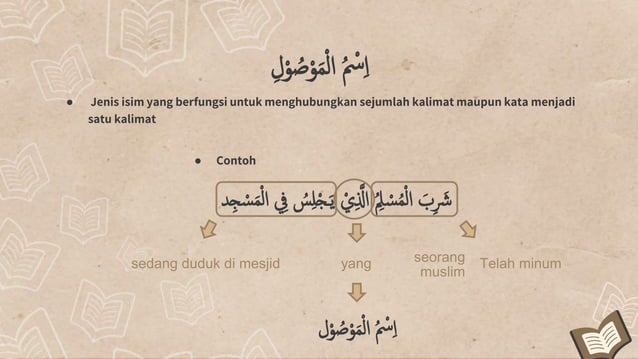 اِسْمُ الْمَوْصُوْلِ
● Jenis isim yang berfungsi untuk menghubungkan sejumlah kalimat maupun kata menjadi
satu kalimat
● Contoh
شَرِبَ الْمُسْلِمُ الَّذِيْ يَجْلِسُ فِي الْمَسْجِد
sedang duduk di mesjid yang seorang muslim Telah minum
اِسْمُ الْمَوْصُوْل